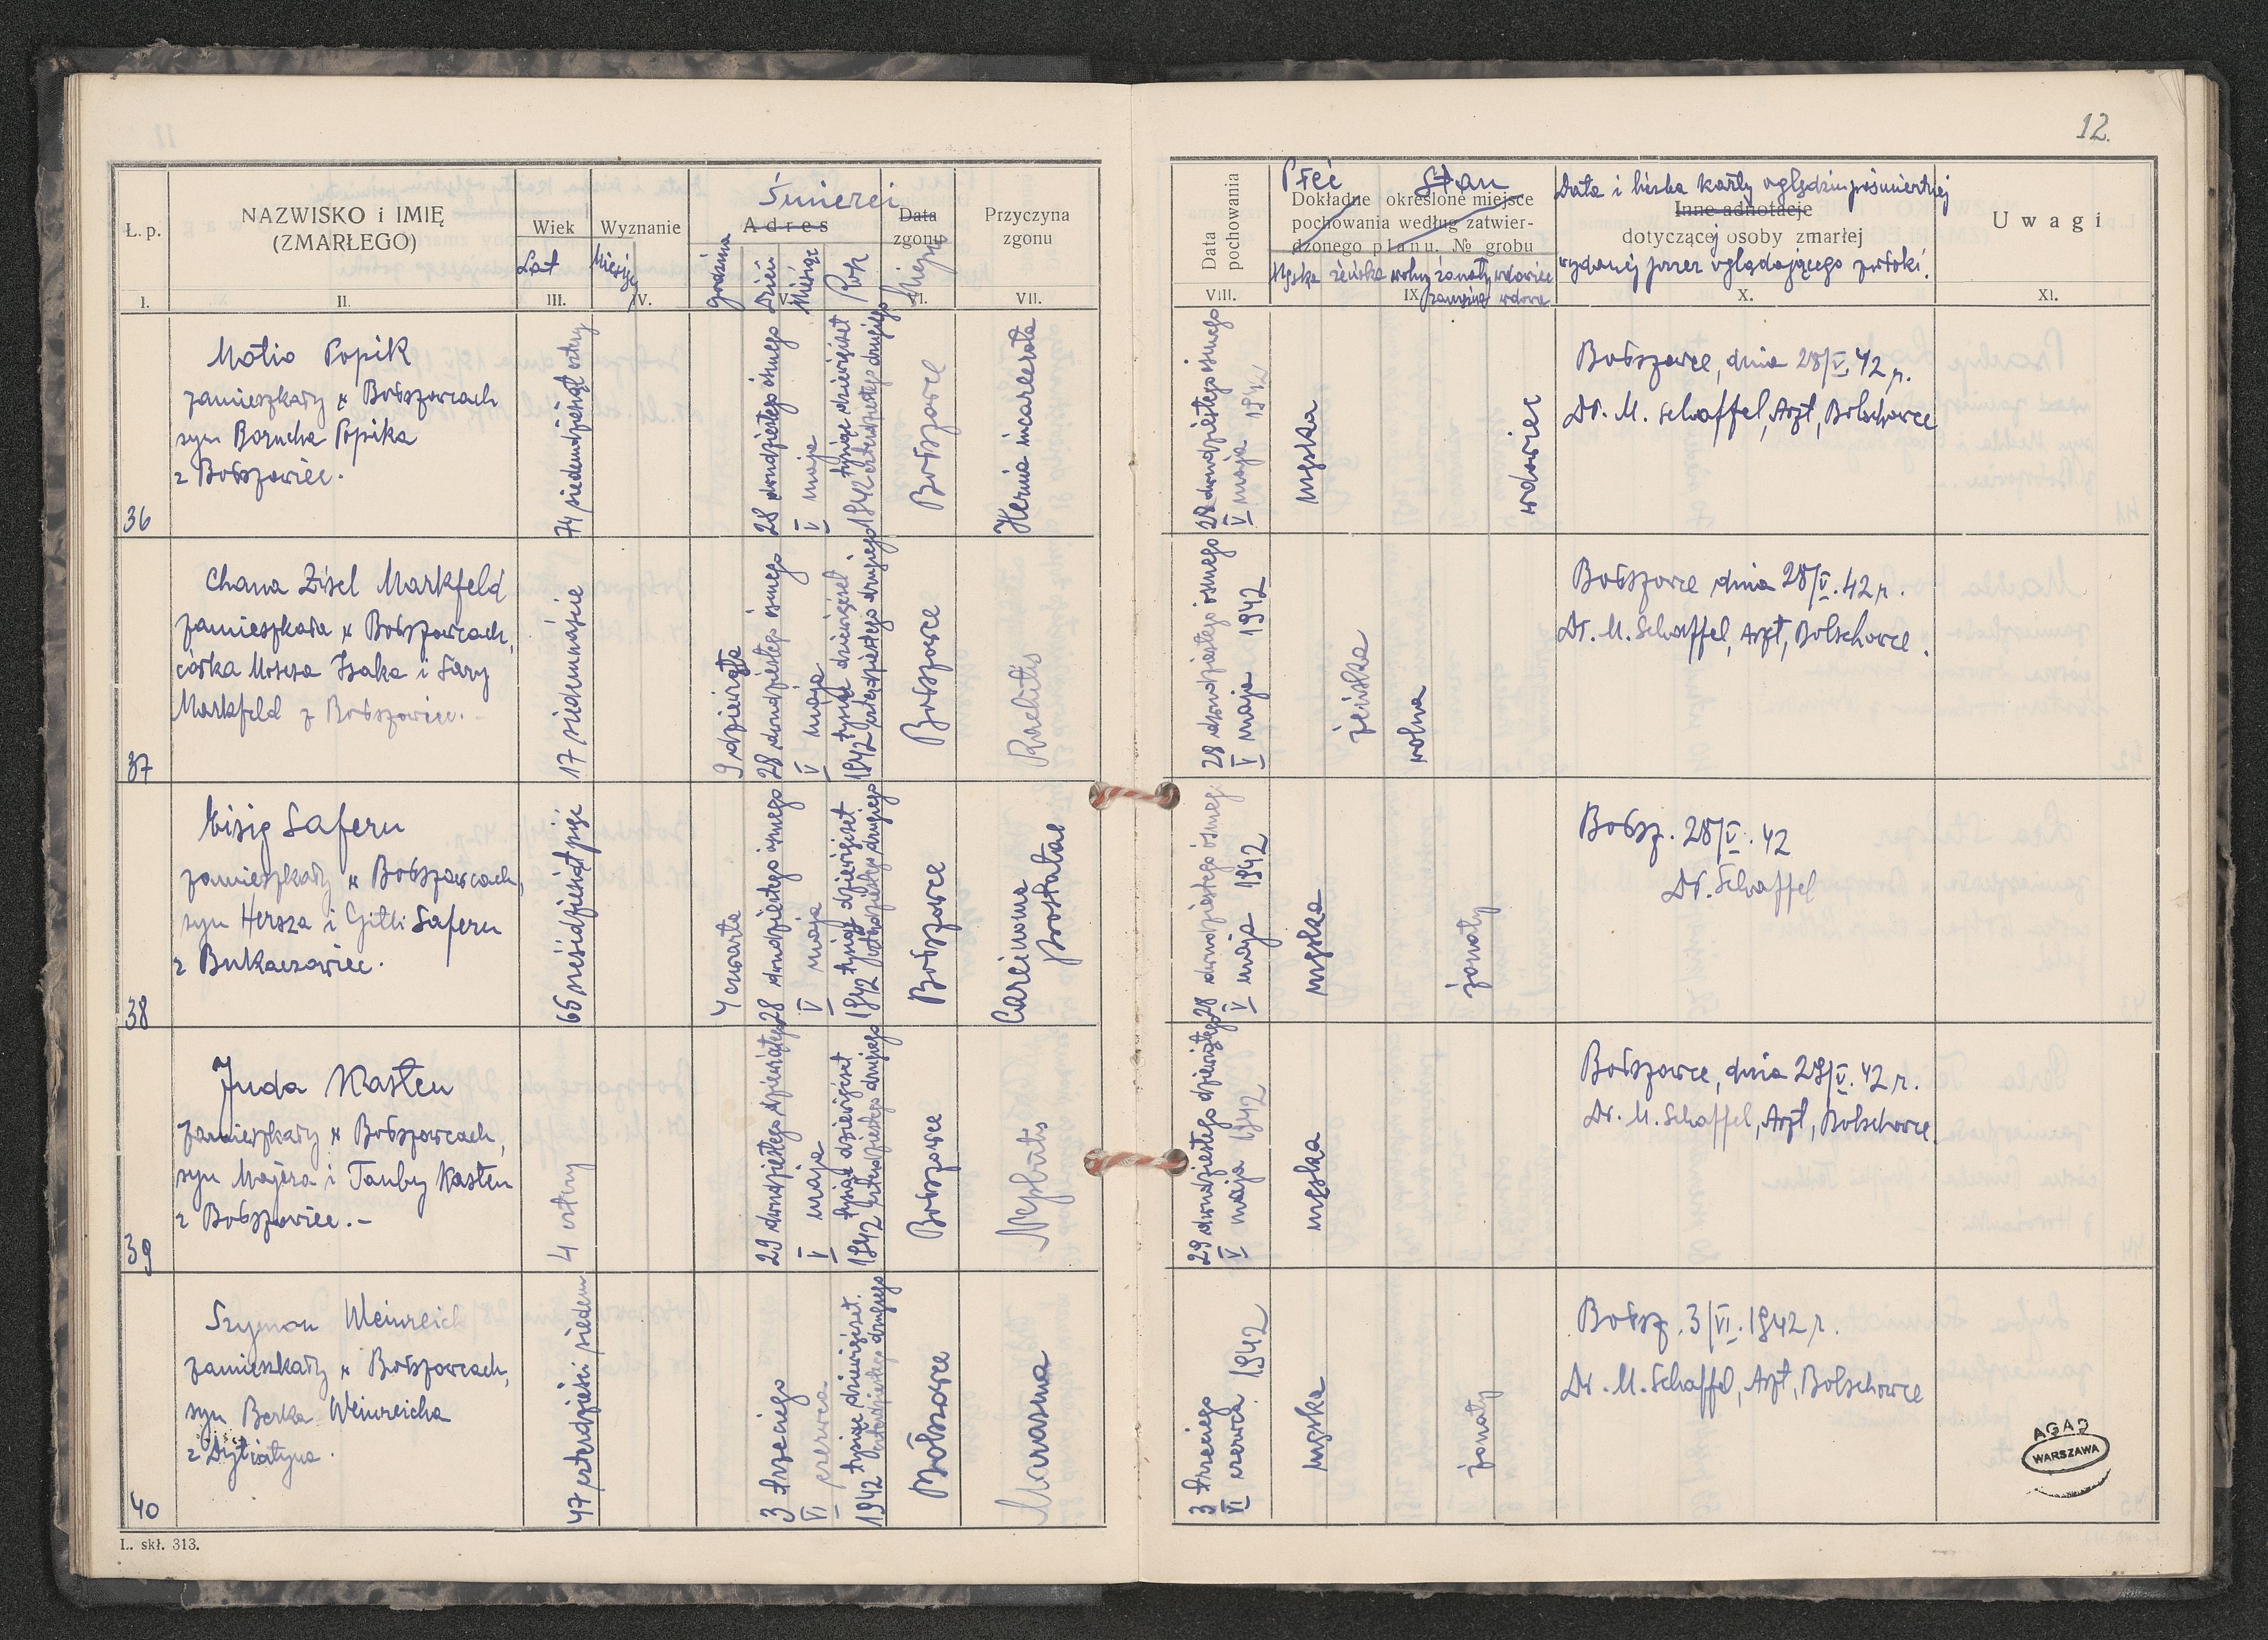 12.
L. p.
NAZWISKO i IMIĘ
(ZMARŁEGO)
Wiek
Lat
Wyznanie
Miesięcy
Śmierci
Adres
godzina
Dzień
Miesiąc
Rok
Data
zgonu
Miejsce
Przyczyna
zgonu
I.
II.
III.
IV.
V.
VI.
VII.
Data
pochowania
Płeć Stan
Dokładne określone miejsce
pochowania według zatwier-
dzonego planu. № grobu
Męska żeńska wolny żonaty wdowiec
zamężna wdowa
Data i liczba karty oględzin pośmiertnej
Inne adnotacje
dotyczącej osoby zmarłej
wydanej przez oglądającego zwłoki.
Uwagi
VIII.
IX.
X.
XI.
36
Motio Popik
zamieszkały w Bołszowcach
syn Borucha Popika
z Bołszowiec.
74 siedemdziesiąt cztery
28 dwudziestego ósmego
V maja
tysiąc dziewięćset
1942 czterdziestego drugiego
Bołszowce
Hernia incarcerata
28 dwudziestego ósmego
V maja 1942
męska
wdowiec
Bołszowce, dnia 28/V. 42 r.
Dr. M. Schaffel, Arzt, Bolschowce
37
Chana Zisel Markfeld
zamieszkała w Bołszowcach,
córka Mosesa Isaka i Sary
Markfeld z Bołszowiec. -
17 siedemnaście
9 dziewiąta
28 dwudziestego ósmego
V maja
tysiąc dziewięćset
1942 czterdziestego drugiego
Bołszowce
Rachitis
28 dwudziestego ósmego
V maja 1942
żeńska
wolna
Bołszowce dnia 28/V. 42 r.
Dr. M. Schaffel, Arzt, Bolschowce.
38
Eisig Safern
zamieszkały w Bołszowcach,
syn Hersza i Gitli Safern
z Bukaczowiec.
65 sześćdziesiąt pięć
4 czwarta
28 dwudziestego ósmego
V maja
tysiąc dziewięćset
1942 czterdziestego drugiego
Bołszowce
Carcinoma
prostatae
28 dwudziestego ósmego
V maja 1942
męska
żonaty
Bołsz. 28/V. 42
Dr. Schaffel
39
Juda Kasten
zamieszkały w Bołszowcach,
syn Majera i Tauby Kasten
z Bołszowiec. -
4 cztery
29 dwudziestego dziewiątego
V maja
tysiąc dziewięćset
1942 czterdziestego drugiego
Bołszowce
Nephritis
29 dwudziestego dziewiątego
V maja 1942
męska
Bołszowce, dnia 29/V. 42 r.
Dr. M. Schaffel, Arzt, Bolschowce.
40
Szymon Weinreich
zamieszkały w Bołszowcach,
syn Berka Weinreicha
z Dytiatyna.
47 czterdzieści siedem
3 trzeciego
VI czerwca
tysiąc dziewięćset.
1942 czterdziestego drugiego
Bołszowce
Marasma
3 trzeciego
VI czerwca 1942
męska
żonaty
Bołsz. 3/VI. 1942 r.
Dr. M. Schaffel, Arzt, Bolschowce
AGAD
WARSZAWA
L. skł. 313.